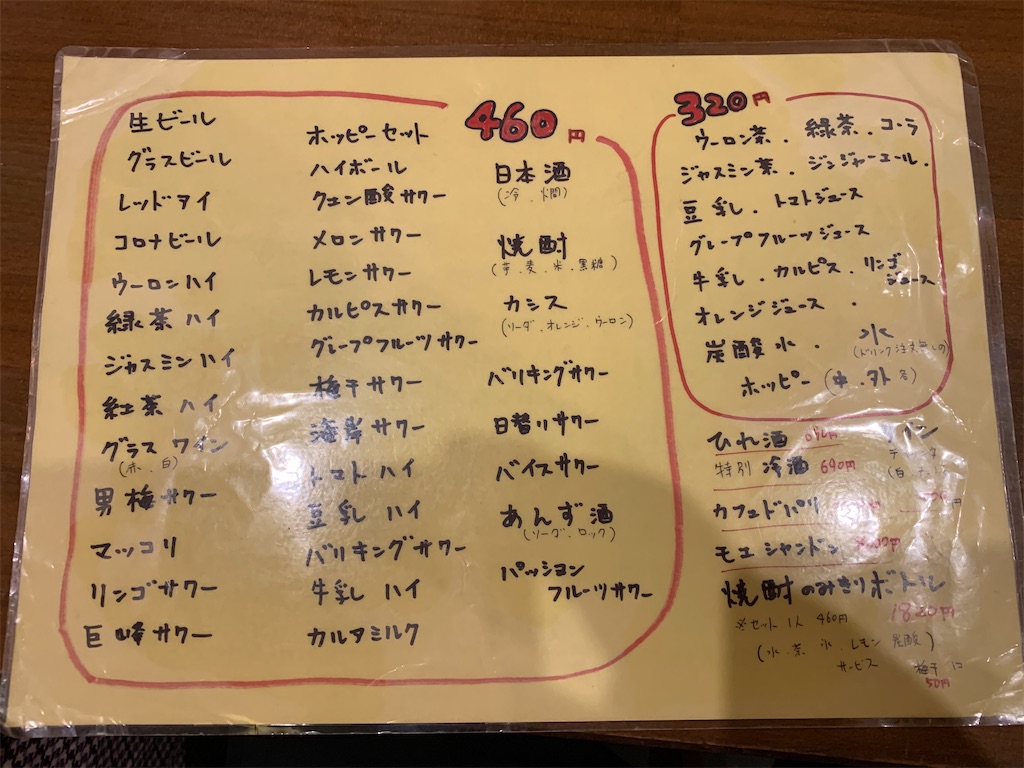 460円
生ビール
グラスビール
レッドアイ
コロナビール
ウーロンハイ
緑茶ハイ
ジャスミンハイ
紅茶ハイ
グラスワイン
(赤、白)
男梅サワー
マッコリ
リンゴサワー
巨峰サワー
ホッピーセット
ハイボール
クエン酸サワー
メロンサワー
レモンサワー
カルピスサワー
グレープフルーツサワー
梅干サワー
海岸サワー
トマトハイ
豆乳ハイ
バリキングサワー
牛乳ハイ
カルアミルク
日本酒
(冷、燗)
焼酎
(芋、麦、米、黒糖)
カシス
(ソーダ、オレンジ、ウーロン)
バリキングサワー
日替りサワー
バイスサワー
あんず酒
(ソーダ、ロック)
パッション
フルーツサワー
320円
ウーロン茶、緑茶、コーラ
ジャスミン茶、ジンジャーエール、
豆乳、トマトジュース
グレープフルーツジュース
牛乳、カルピス、リンゴ
ジュース
オレンジジュース、
炭酸水、氷
(ドリンク注文無しの
ホッピー(中、外 各)
ひれ酒
特別 冷酒 640円
カフェドパリ
モエシャンドン
焼酎のみきりボトル
1820円
※セット 1人 460円
(水、茶、氷、レモン 炭酸)
サービス 梅干1コ
50円